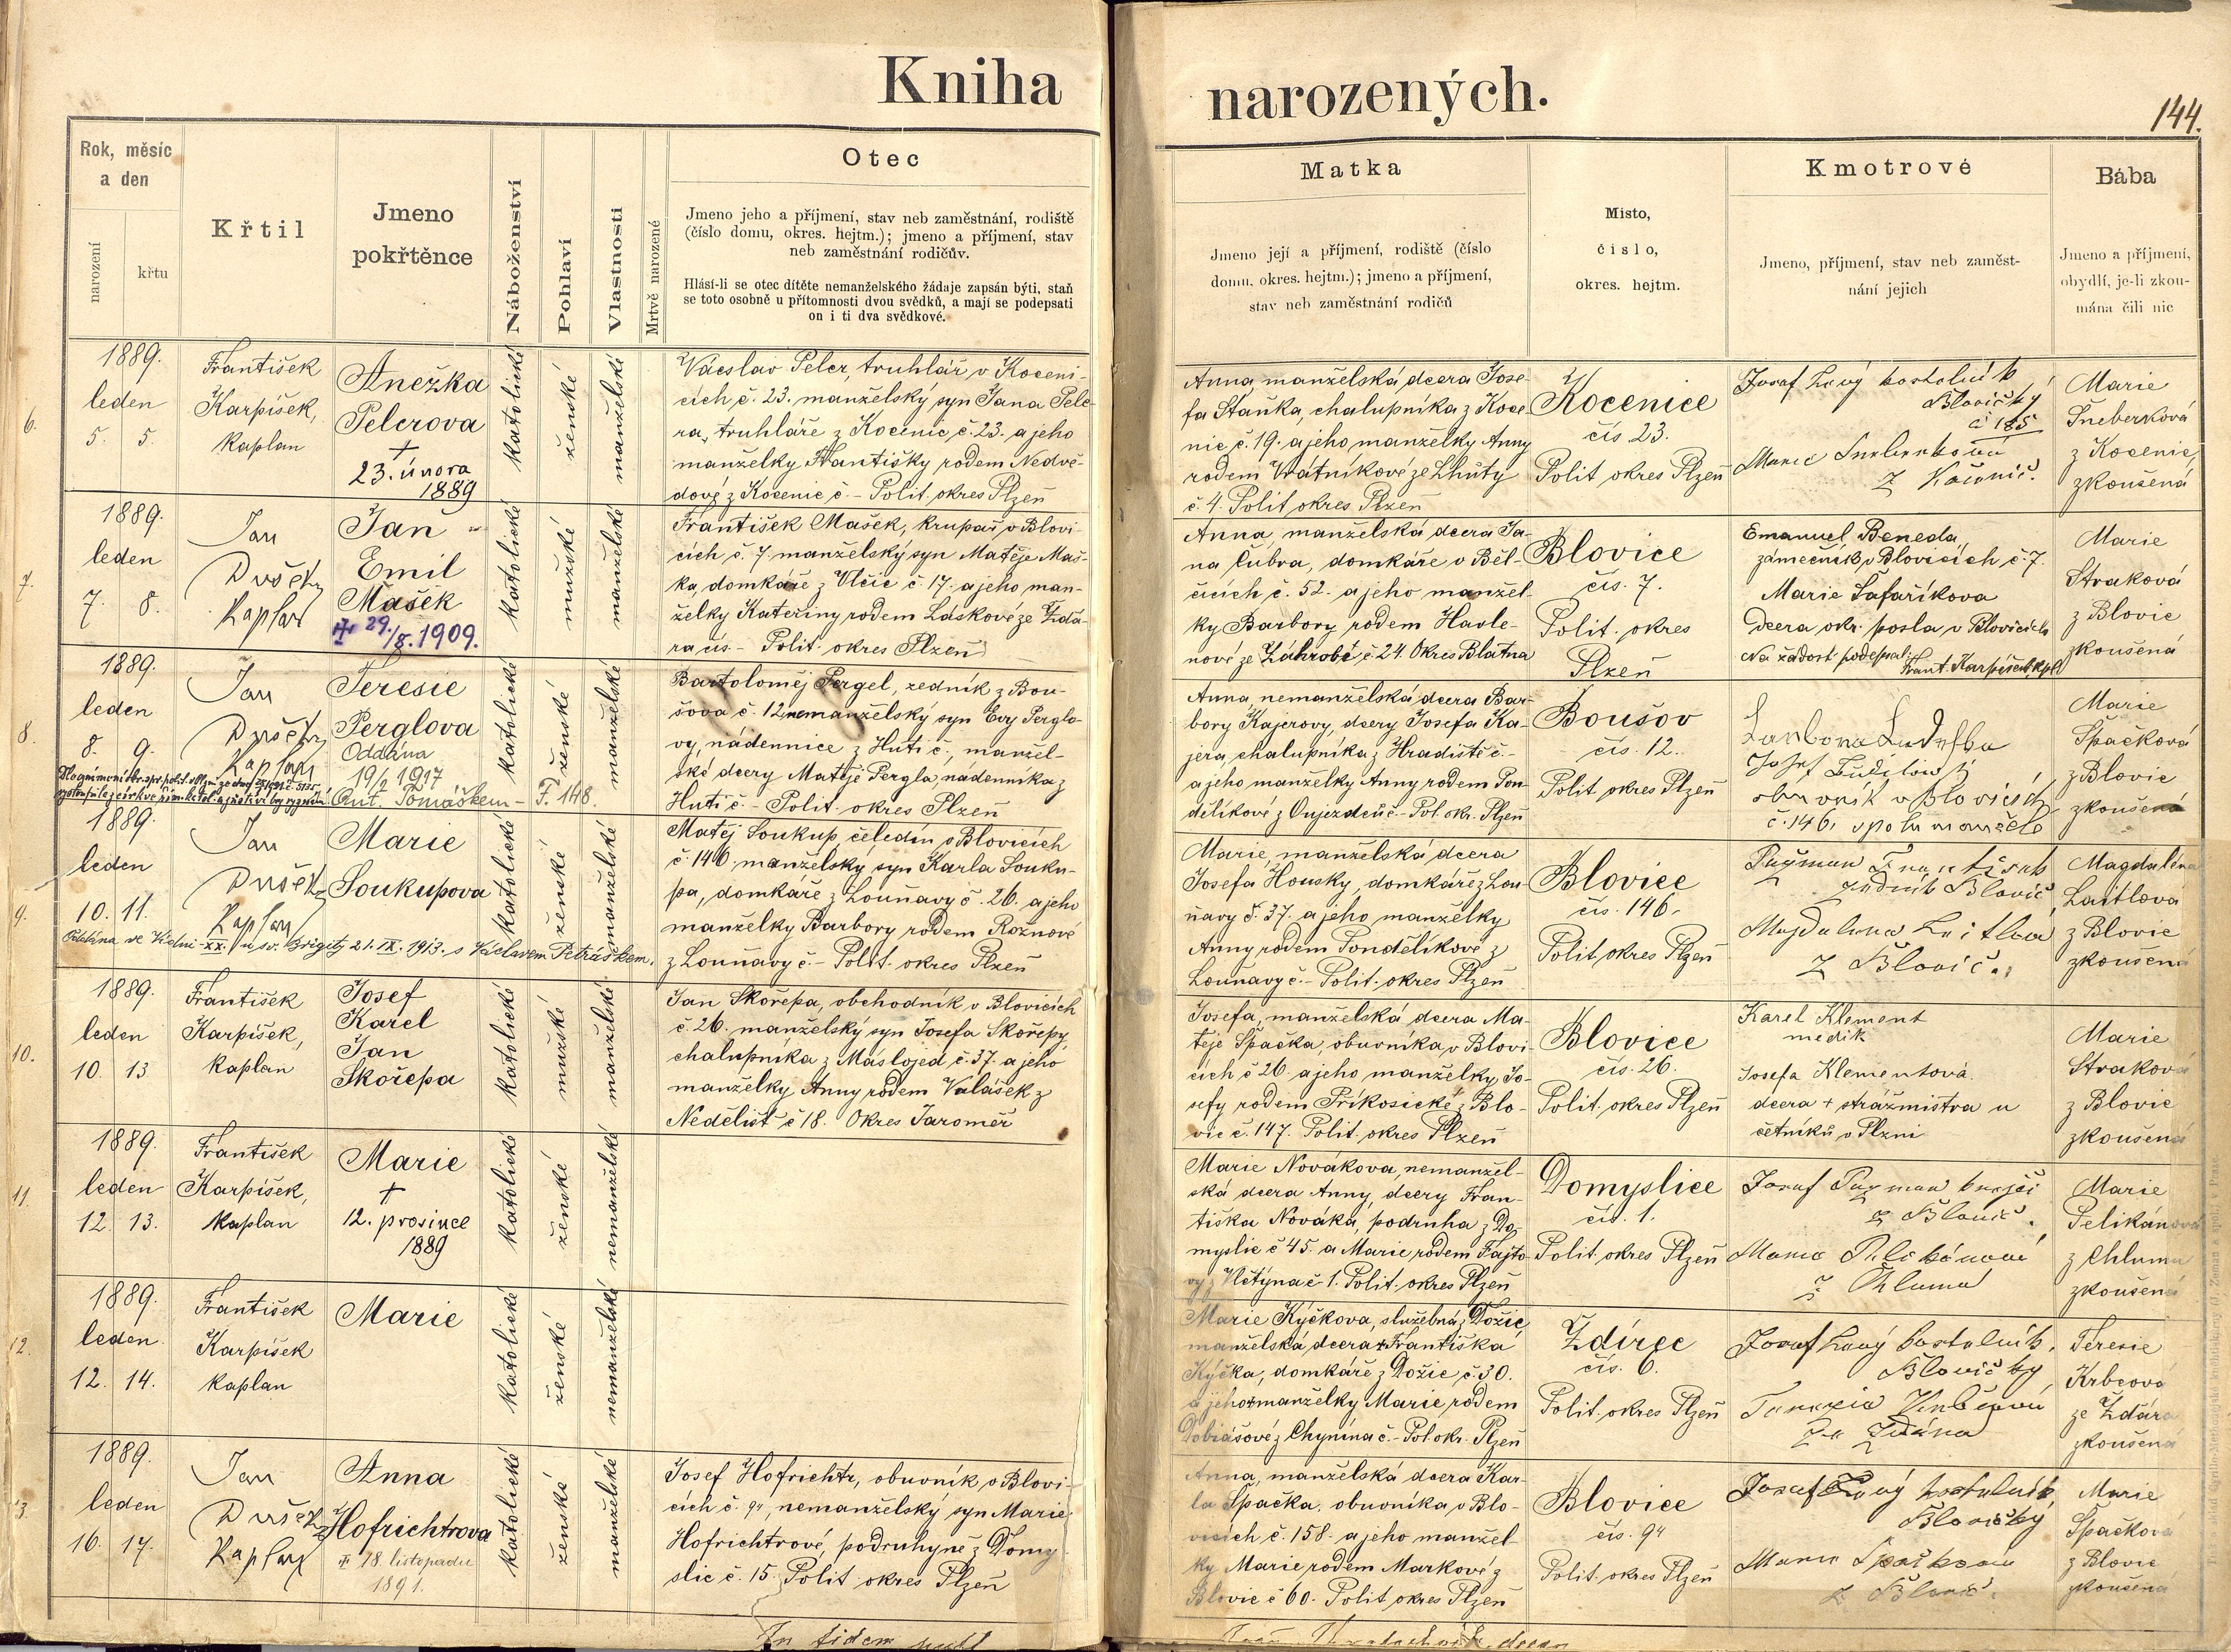 Kniha
narozených.
144.
Rok, měsíc
a den
narození
křtu
Křtil
Jmeno
pokřtěnce
Náboženství
Pohlaví
Vlastnosti
Mrtvě narozené
Otec
Jmeno jeho a příjmení, stav neb zaměstnání, rodiště
(číslo domu, okres. hejtm.); jmeno a příjmení, stav
neb zaměstnání rodičův.
Hlásí-li se otec dítěte nemanželského žádaje zapsán býti, staň
se toto osobně u přítomnosti dvou svědků, a mají se podepsati
on i ti dva svědkové.
Matka
Jmeno její a příjmení, rodiště (číslo
domu, okres. hejtm.); jmeno a příjmení,
stav neb zaměstnání rodičů
Misto,
čislo,
okres. hejtm.
Kmotrové
Jmeno, příjmení, stav neb zaměst-
nání jejich
Bába
Jmeno a příjmení,
obydlí, je-li zkou-
mána čili nic
6.
1889.
leden
5. 5.
František
Karpíšek,
kaplan
Anežka
Pelcrova
+
23. února
1889
katolické
ženské
manželské
Václav Pelcr, truhlář v Koceni-
cích č. 23. manželský syn Jana Pelc-
ra, truhláře z Kocenic č. 23. a jeho
manželky Františky rodem Nedvě-
dové z Kocenic č. - Polit. okres Plzeň
Anna, manželská dcera Jose-
fa Staňka, chalupníka z Koce-
nic č. 19. a jeho manželky Anny
rodem Vrátníkové ze Lhůty
č. 4. Polit okres Plzeň
Kocenice
čís 23.
Polit okres Plzeň
Josef
Blovičký
č 185
Marie
z
Marie
Šneberková
z Kocenic
zkoušená
7.
1889.
leden
7. 8.
Jan
Dušek
Kaplan
Jan
Emil
Mašek
29./8. 1909.
katolické
mužské
manželské
František Mašek, krupař v Blovi-
cích č. 7. manželský syn Matěje Maš-
ka, domkáře z Vlčic č. 17. a jeho man-
želky Kateřiny rodem Láskové ze Ždá-
ra čís. - Polit. okres Plzeň
Anna, manželská dcera Ja-
na Čubra, domkáře v Běl-
čicích č. 52. a jeho manžel-
ky Barbory rodem Havle-
nové ze Záhrobí č 24. Okres Blatna
Blovice
čís. 7.
Polit. okres
Plzeň
Emanuel Beneda,
zámečník v Blovicích č. 7.
Marie Šafaříkova
dcera okr. posla v Blovicích
Na žádost podepsal
Frant. Karpíšek, kpl.
Marie
Straková
z Blovic
zkoušená
8.
1889.
leden
8. 9.
Jan
Dušek
Kaplan
Teresie
Perglova
Oddána
19/2 1917
Ant. Tomáškem - F. 148.
katolické
ženské
manželské
Bartoloměj Pergel, zedník z Bou-
šova č. 12, nemanželský syn Evy Perglo-
vy, nádennice z Hutí č. , manžel-
ské dcery Matěje Pergla, nádenníka z
Hutí č. - Polit. okres Plzeň
Anna, nemanželská dcera Bar-
bory Kajerovy, dcery Josefa Ka-
jera, chalupníka z Hradiště č. -
a jeho manželky Anny rodem Pon-
dělíkové z Oujezdců č. - Pol. okr. Plzeň
Boušov
čís. 12.
Polit okres Plzeň
Josef
obuvník v Blovicích
č. 146, spolu manželé
Marie
Špačková
z Blovic
zkoušená
9.
1889.
leden
10. 11.
Jan
Dušek
Kaplan
Marie
Soukupova
katolické
ženské
manželské
Oddána ve Vídni XX. u sv. Brigity 21. IX. 1913. s Václavem Petráškem.
Matěj Soukup, čeledín v Blovicích
č. 146. manželský syn Karla Souku-
pa, domkáře z Louňavy č. 26. a jeho
manželky Barbory rodem Rožnové
z Louňavy č. - Polit. okres Plzeň
Marie, manželská dcera
Josefa Housky, domkáře z Lou-
ňavy č. 37. a jeho manželky
Anny rodem Pondělíkové z
Lounavy č. - Polit. okres Plzeň
Blovice
čís. 146.
Polit, okres Plzeň
Magdalena
z Blovic.
Magdaléna
Laitlova
z Blovic
zkoušená
10.
1889.
leden
10. 13
František
Karpíšek,
kaplan
Josef
Karel
Jan
Skořepa
katolické
mužské
manželské
Jan Skořepa, obchodník v Blovicích
č. 26. manželský syn Josefa Skořepy,
chalupníka z Máslojed č. 37. a jeho
manželky Anny rodem Valášek z
Nedělišt č 18. Okres Jaroměř
Josefa, manželská dcera Ma-
těje Špačka, obuvníka v Blovi-
cích č 26. a jeho manželky Jo-
sefy rodem Příkosické z Blo-
vic č. 147. Polit. okres Plzeň
Blovice
čís. 26.
Polit. okres Plzeň
Karel Klement
medik
Josefa Klementová
dcera + strážmistra u
četníků v Plzni
Marie
Straková
z Blovic
zkoušená
11.
1889.
leden
12. 13.
František
Karpíšek,
kaplan
Marie
+
12. prosince
1889
katolické
ženské
nemanželské
Marie Novákova, nemanžel-
ská dcera Anny, dcery Fran-
tiška Nováka, podruha z Do-
myslic č 45. a Marie rodem Fajto-
vy z Vlčtýna č 1. Polit. okres Plzeň
Domyslice
čís. 1.
Polit. okres Plzeň
Josef
z Blovic.
z Chlumu
Marie
Pelikánová
z Chlumu
zkoušená
12.
1889.
leden
12. 14.
František
Karpíšek
kaplan
Marie
katolické
ženské
nemanželské
Marie Kýčkova, služebná z Dožic
manželská dcera + Františka
Kýčka, domkáře z Dožic č. 30.
a jeho + manželky Marie rodem
Dobiášové z Chynína č. - Pol. okr. Plzeň
Ždírec
čís. 6.
Polit. okres Plzeň
Josef
Blovičky
Teresie
Krbcová
ze Ždára
zkoušená
13.
1889.
leden
16. 17.
Jan
Dušek
Kaplan
Anna
Hofrichtrova
18. listopadu
1891.
katolické
ženské
manželské
Josef Hofrichtr, obuvník v Blovi-
cích č. 94, nemanželský syn Marie
Hofrichtrové, podruhyně z Domy
slic č. 15. Polit. okres Plzeň
Anna, manželská dcera Kar-
la Špačka, obuvníka v Blo-
vicích č. 158. a jeho manžel-
ky Marie rodem Markové z
Blovic č 60. Polit okres Plzeň
Blovice
čís. 94
Polit. okres Plzeň
Josef
Blovičký
Marie
z Blovic.
Marie
Špačková
z Blovic
zkoušená
In fidem